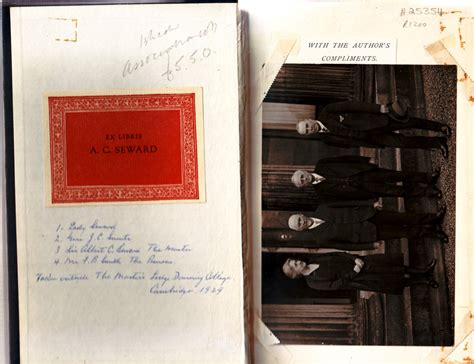 £5.5.0.
EX LIBRIS
A. C. SEWARD
1. Lady Seward
2. Mrs J. C. Smuts
3 Sir Albert C. Seward The Master
4 Mr F. B. Smith The Bursar
Taken outside The Master's Lodge Downing College
Cambridge 1929
#25354
R1200
WITH THE AUTHOR'S
COMPLIMENTS.